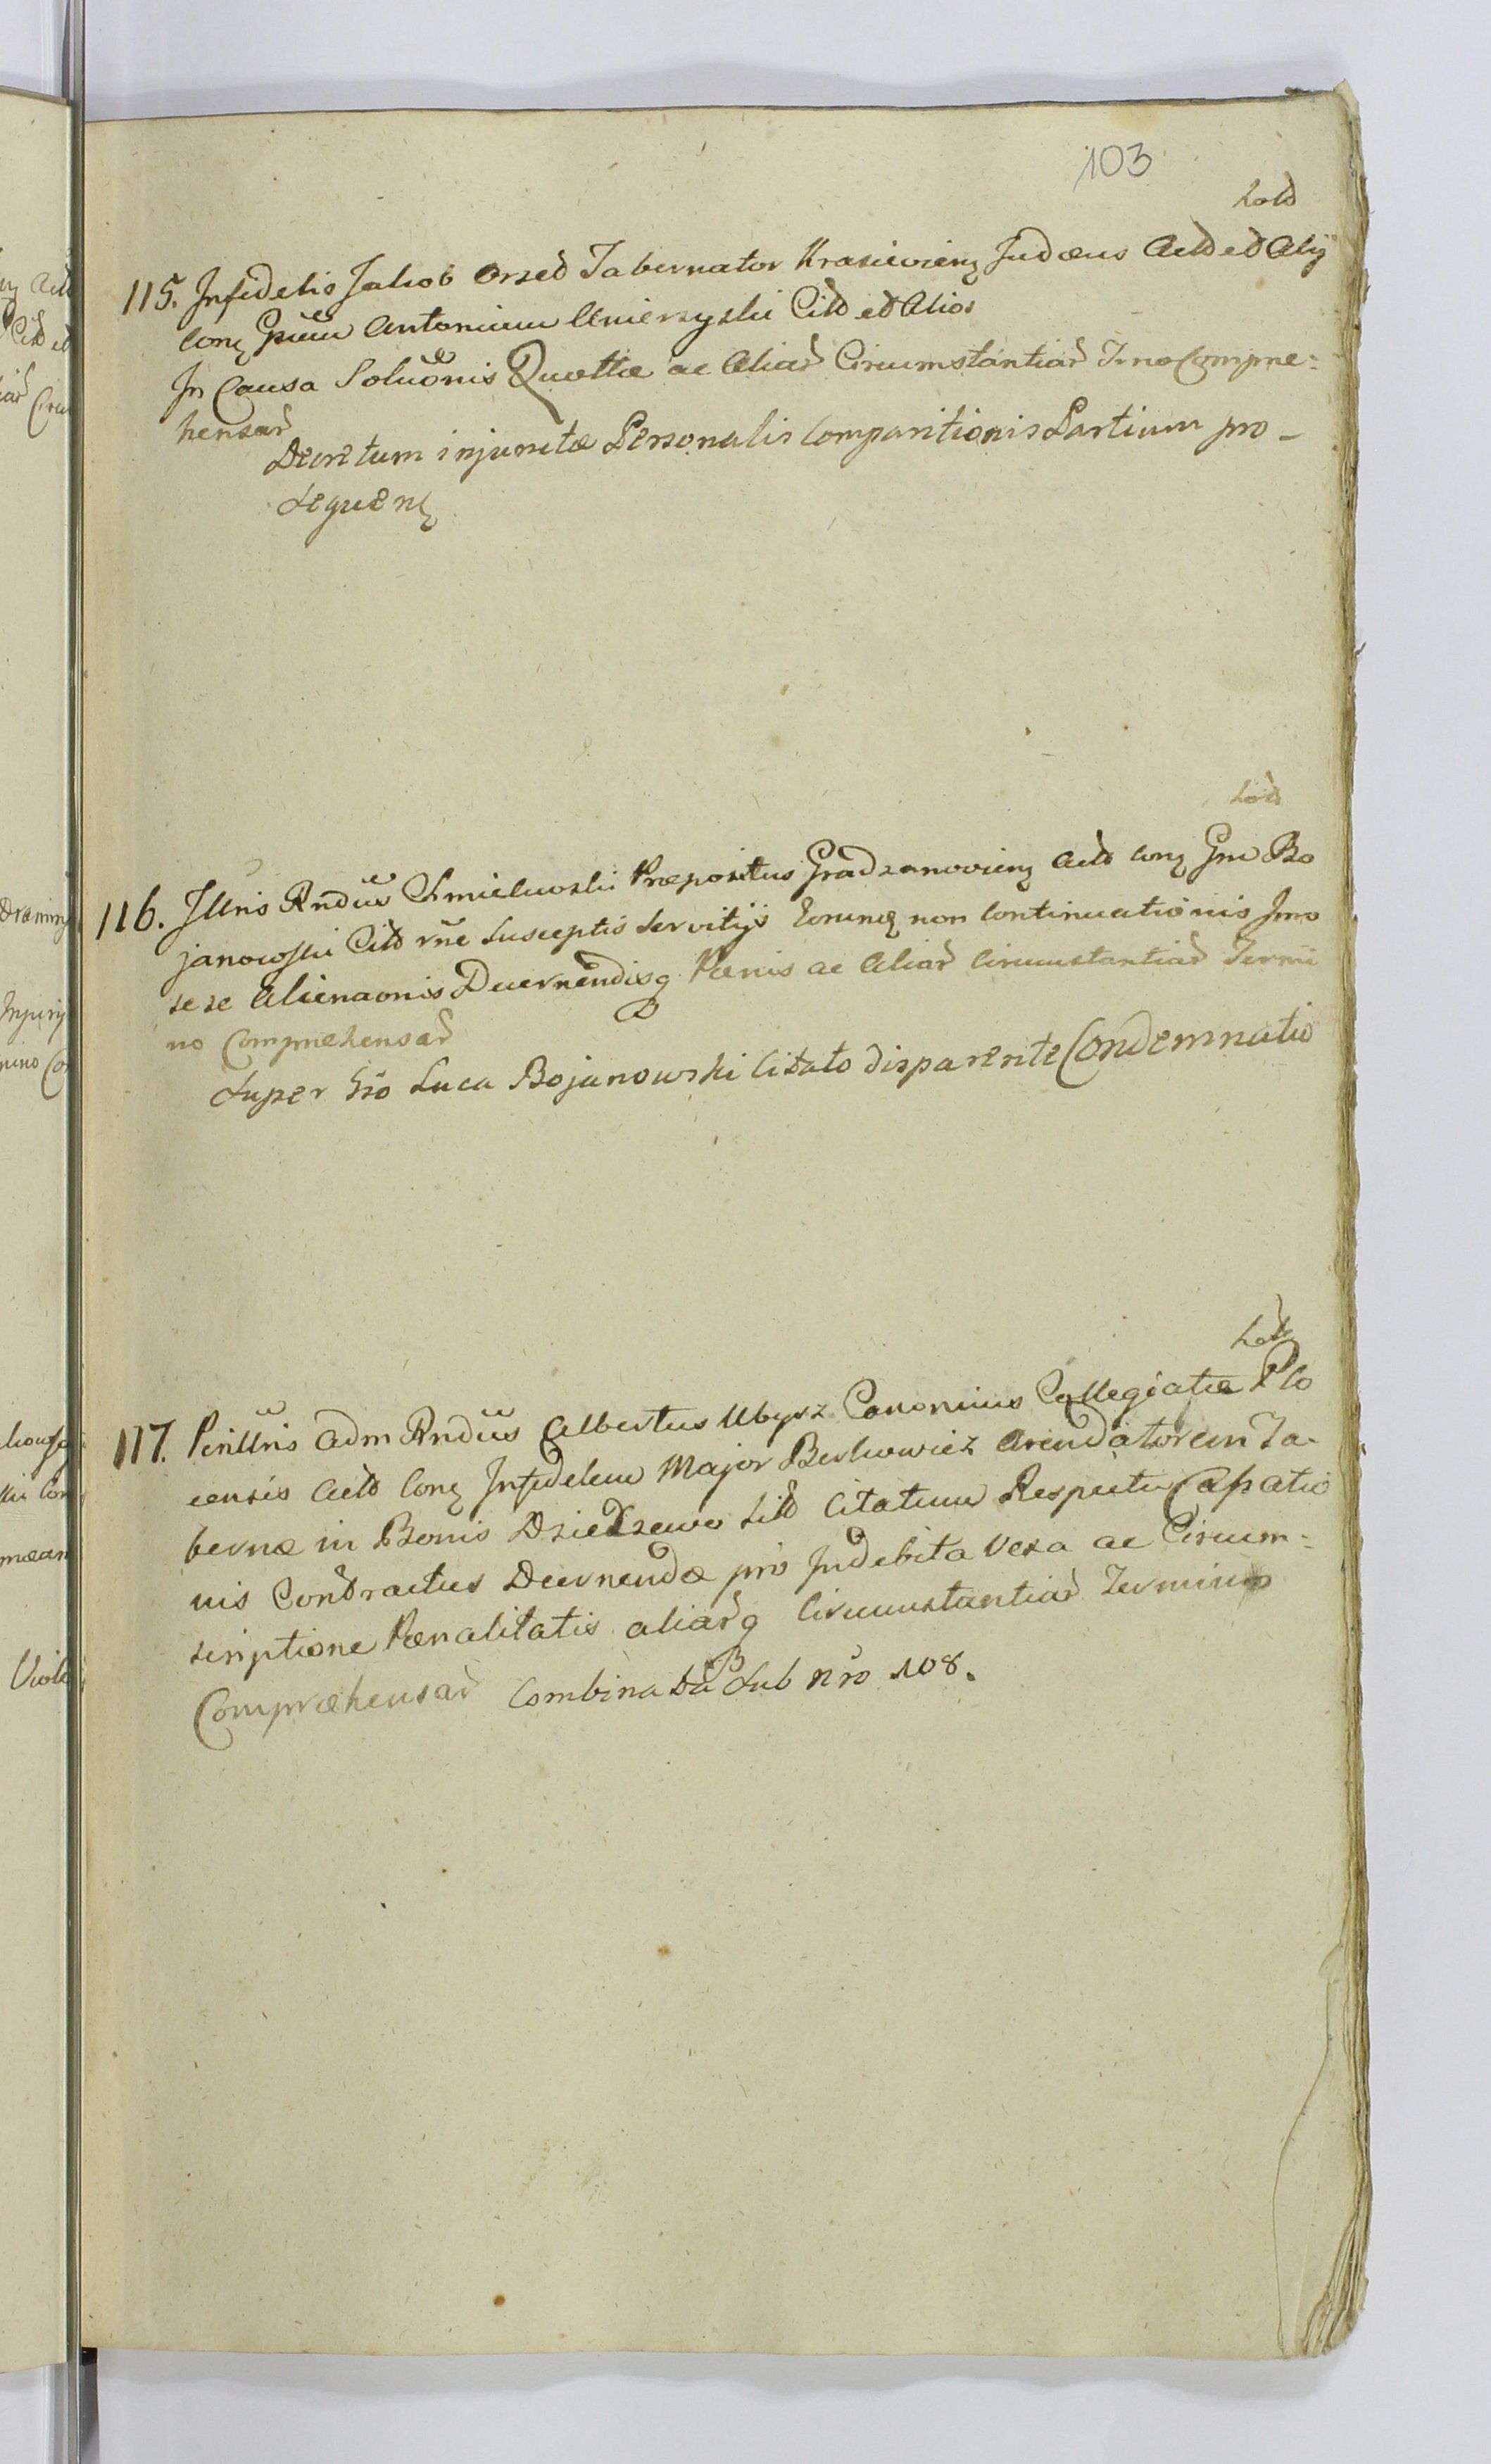 103
115. Infidelis Jakob Orzed Tabernator Krasieviens Judæus Actd ed Alij
Cons Gsum Antonium Umierzyski Citd ed Alios
In Causa Soluonis Quottæ ac Aliar Circumstantiar Tno Compræ-
hensar
Decretum injunctæ Personalis Comparitionis Partium pro-
sequens
116. Illris Rndus Chmielewski Præpositus Gradzanoviens Actd cons Gm Bo
janowski Citd rne Susceptis Servitijs Eorumq non Continuationis Imo
se se Alienaonis Decernendisq Pænis ac Aliar Circumstantiar Termi
no Compræhensar
Super Gso Luca Bojanowski Citato disparente Condemnatio
117. Perillris Adm Rndus Albertus Ubysz Canonicus Collegiatæ Plo
censis Actd Cons Infidelem Major Berkowicz Arendatorem Ta-
bernæ in Bonis Dziedzewo Sitd Citatum Respectu Cassatio
nis Contractus Decernendæ pro Indebita Vexa ac Circum-
scriptione Pænalitatis aliarq Circumstantiar Termino
Compræhensar Combinata Sub nro 108.